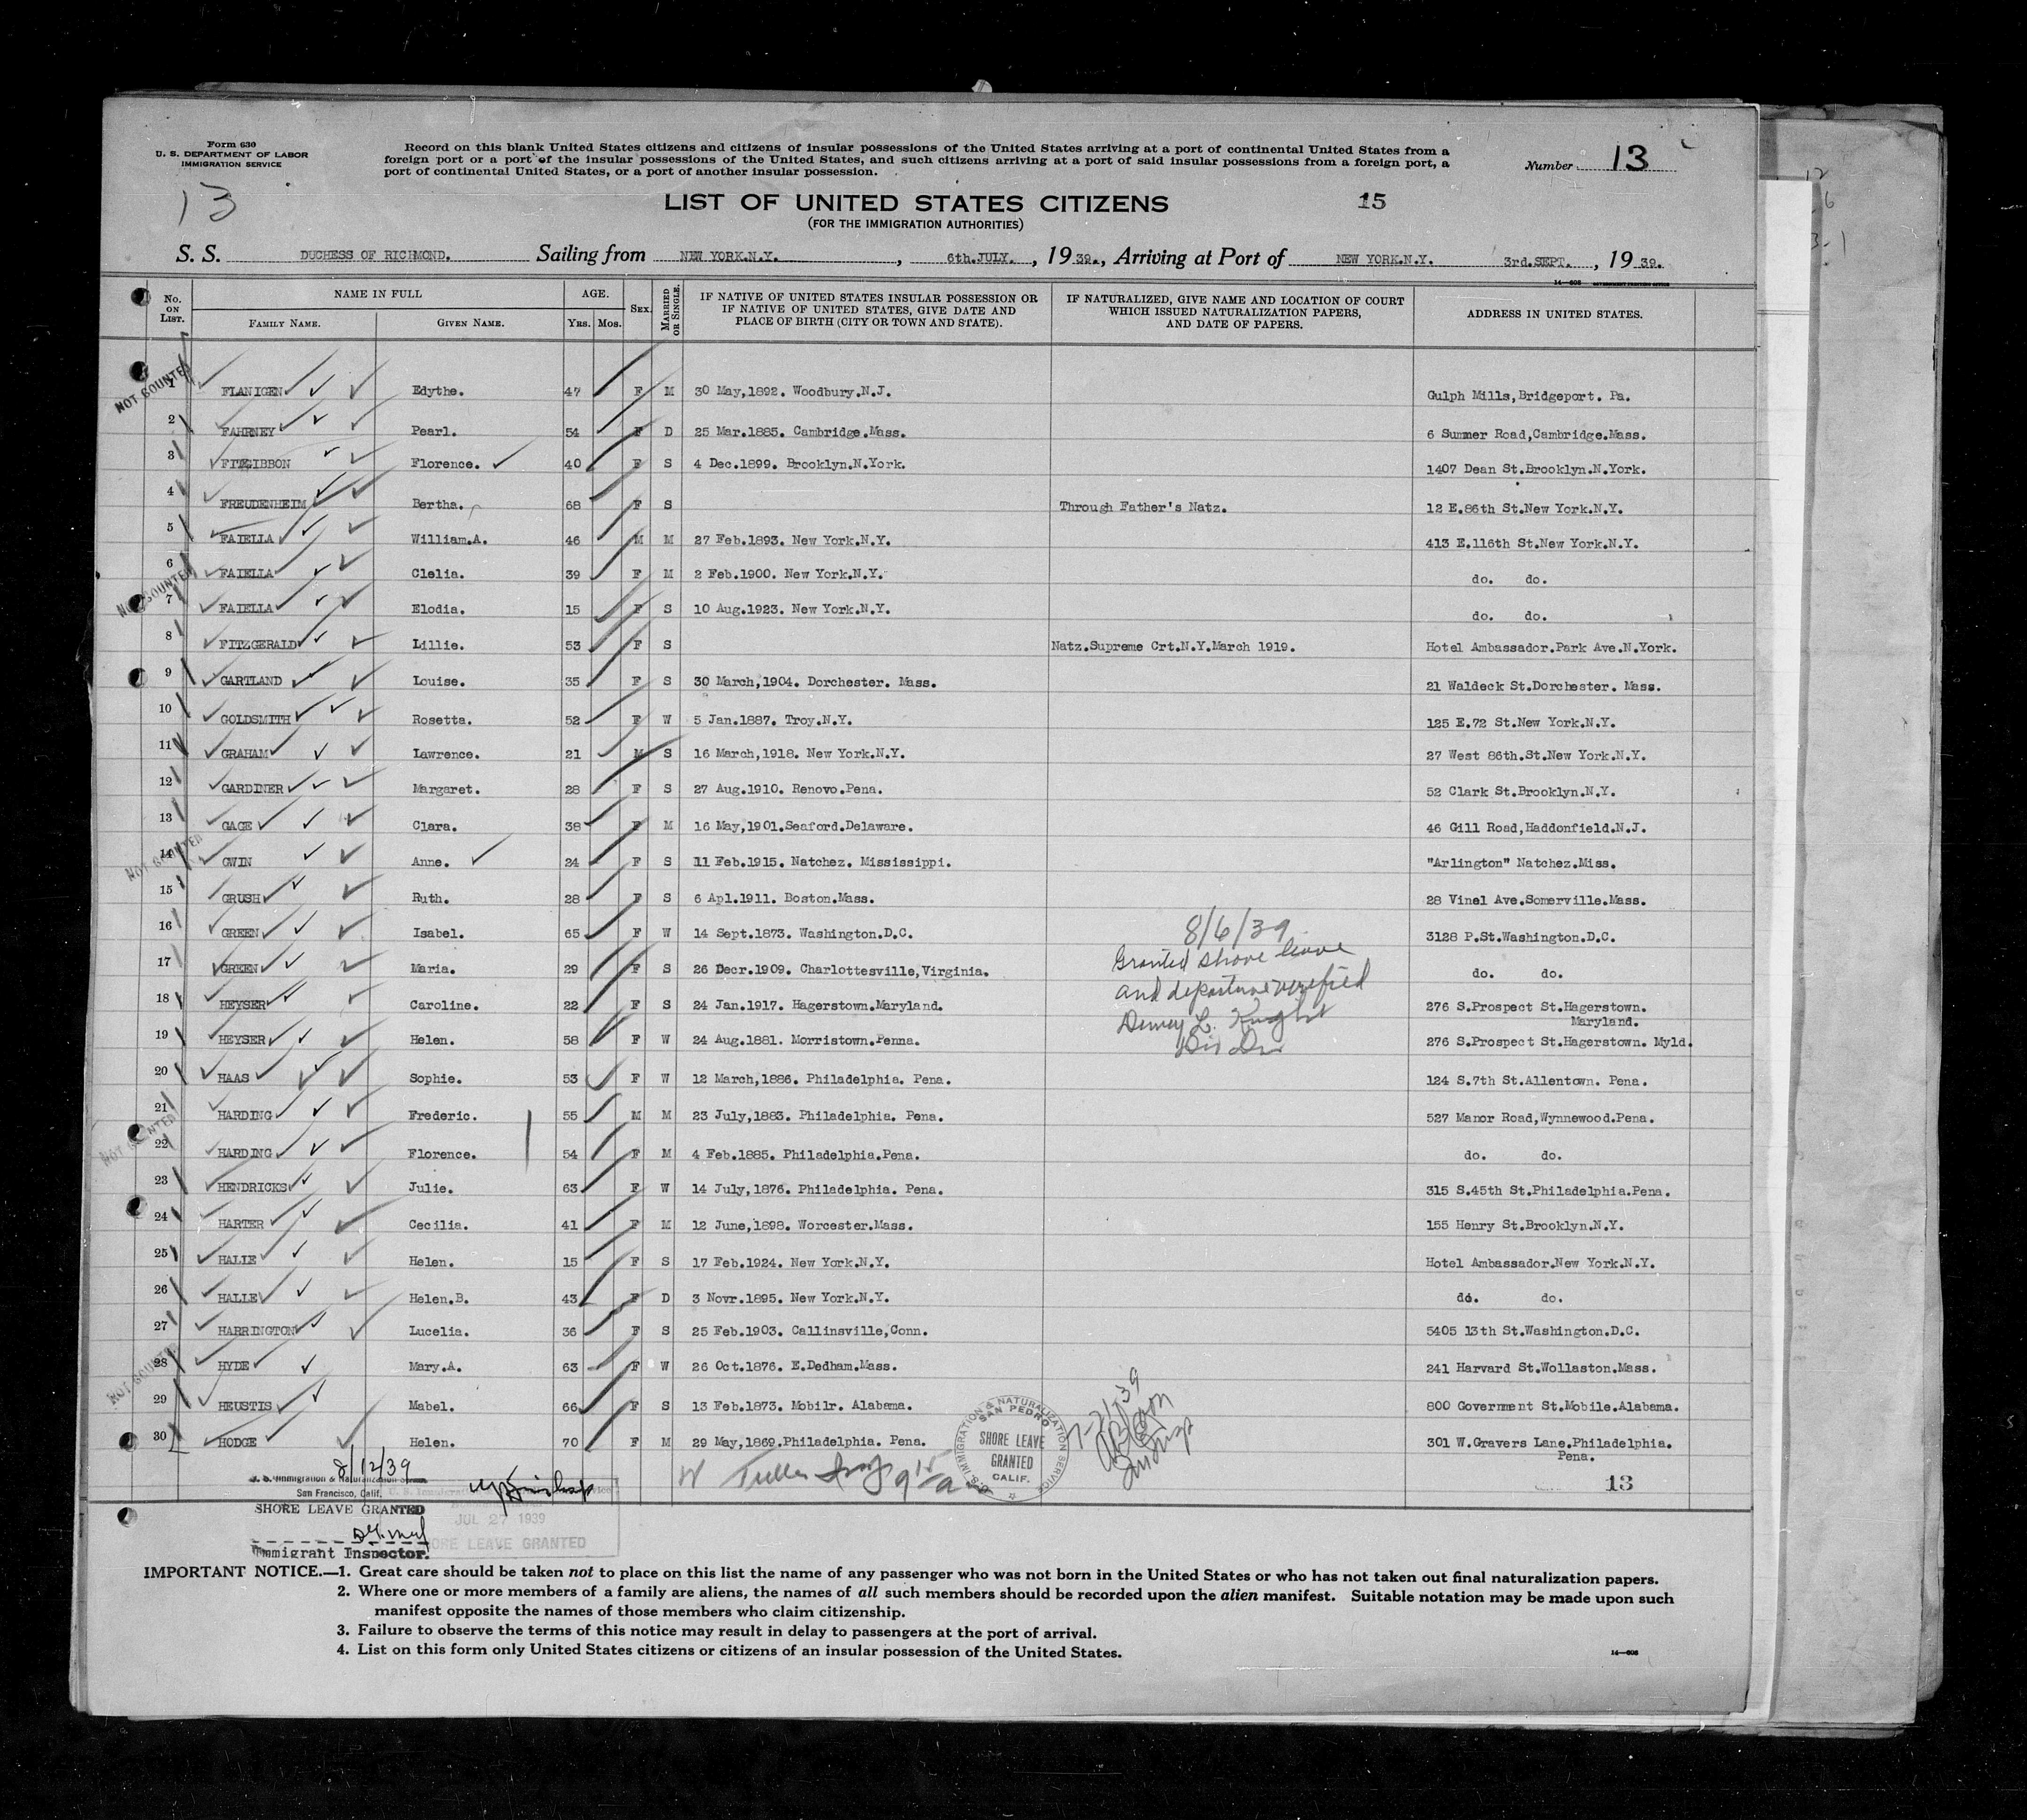 Form 630
U. S. DEPARTMENT OF LABOR
IMMIGRATION SERVICE
Record on this blank United States citizens and citizens of insular possessions of the United States arriving at a port of continental United States from a
foreign port or a port of the insular possessions of the United States, and such citizens arriving at a port of said insular possessions from a foreign port, a
port of continental United States, or a port of another insular possession.
Number 13
13
LIST OF UNITED STATES CITIZENS
15
(FOR THE IMMIGRATION AUTHORITIES)
S. S. DUCHESS OF RICHMOND. Sailing from NEW YORK.N.Y. , 6th.JULY. , 1939., Arriving at Port of NEW YORK.N.Y. 3rd.SEPT. , 1939.
14—608 GOVERNMENT PRINTING OFFICE
No. ON LIST. NAME IN FULL FAMILY NAME. GIVEN NAME. AGE. YRS. MOS. SEX. MARRIED OR SINGLE. IF NATIVE OF UNITED STATES INSULAR POSSESSION OR IF NATIVE OF UNITED STATES, GIVE DATE AND PLACE OF BIRTH (CITY OR TOWN AND STATE). IF NATURALIZED, GIVE NAME AND LOCATION OF COURT WHICH ISSUED NATURALIZATION PAPERS, AND DATE OF PAPERS. ADDRESS IN UNITED STATES.
NOT COUNTED
1 FLANIGEN Edythe. 47 F M 30 May,1892. Woodbury.N.J. Gulph Mills,Bridgeport. Pa.
2 FAHRNEY Pearl. 54 F D 25 Mar.1885. Cambridge.Mass. 6 Summer Road,Cambridge.Mass.
3 FITZGIBBON Florence. 40 F S 4 Dec.1899. Brooklyn.N.York. 1407 Dean St.Brooklyn.N.York.
4 FREUDENHEIM Bertha. 68 F S Through Father's Natz. 12 E.86th St.New York.N.Y.
5 FAIELLA William.A. 46 M M 27 Feb.1893. New York.N.Y. 413 E.116th St.New York.N.Y.
6 FAIELLA Clelia. 39 F M 2 Feb.1900. New York.N.Y. do. do.
NOT COUNTED
7 FAIELLA Elodia. 15 F S 10 Aug.1923. New York.N.Y. do. do.
8 FITZGERALD Lillie. 53 F S Natz.Supreme Crt.N.Y.March 1919. Hotel Ambassador.Park Ave.N.York.
9 GARTLAND Louise. 35 F S 30 March,1904. Dorchester. Mass. 21 Waldeck St.Dorchester. Mass.
10 GOLDSMITH Rosetta. 52 F W 5 Jan.1887. Troy.N.Y. 125 E.72 St.New York.N.Y.
11 GRAHAM Lawrence. 21 M S 16 March,1918. New York.N.Y. 27 West 86th.St.New York.N.Y.
12 GARDINER Margaret. 28 F S 27 Aug.1910. Renovo.Pena. 52 Clark St.Brooklyn.N.Y.
13 GAGE Clara. 38 F M 16 May,1901.Seaford.Delaware. 46 Gill Road,Haddonfield.N.J.
NOT COUNTED
14 GWIN Anne. 24 F S 11 Feb.1915. Natchez. Mississippi. "Arlington" Natchez.Miss.
15 GRUSH Ruth. 28 F S 6 Apl.1911. Boston.Mass. 28 Vinel Ave.Somerville.Mass.
16 GREEN Isabel. 65 F W 14 Sept.1873. Washington.D.C. 3128 P.St.Washington.D.C.
17 GREEN Maria. 29 F S 26 Decr.1909. Charlottesville,Virginia. do. do.
18 HEYSER Caroline. 22 F S 24 Jan.1917. Hagerstown.Maryland. 276 S.Prospect St.Hagerstown.
Maryland.
19 HEYSER Helen. 58 F W 24 Aug.1881. Morristown.Penna. 276 S.Prospect St.Hagerstown. Myld.
8/6/39
Granted shore leave
and departure verified
Dewey L. Knight
20 HAAS Sophie. 53 F W 12 March,1886. Philadelphia. Pena. 124 S.7th St.Allentown. Pena.
21 HARDING Frederic. 55 M M 23 July,1883. Philadelphia. Pena. 527 Manor Road,Wynnewood.Pena.
NOT COUNTED
22 HARDING Florence. 54 F M 4 Feb.1885. Philadelphia.Pena. do. do.
23 HENDRICKS Julie. 63 F W 14 July,1876. Philadelphia. Pena. 315 S.45th St.Philadelphia.Pena.
24 HARTER Cecilia. 41 F M 12 June,1898. Worcester.Mass. 155 Henry St.Brooklyn.N.Y.
25 HALLE Helen. 15 F S 17 Feb.1924. New York.N.Y. Hotel Ambassador.New York.N.Y.
26 HALLE Helen.B. 43 F D 3 Novr.1895. New York.N.Y. do. do.
27 HARRINGTON Lucelia. 36 F S 25 Feb.1903. Callinsville,Conn. 5405 13th St.Washington.D.C.
NOT COUNTED
28 HYDE Mary.A. 63 F W 26 Oct.1876. E.Dedham.Mass. 241 Harvard St.Wollaston.Mass.
29 HEUSTIS Mabel. 66 F S 13 Feb.1873. Mobilr. Alabama. 800 Government St.Mobile.Alabama.
30 HODGE Helen. 70 F M 29 May,1869.Philadelphia. Pena. 301 W.Gravers Lane.Philadelphia.
Pena.
U.S. IMMIGRATION & NATURALIZATION SERVICE
SAN PEDRO
SHORE LEAVE
GRANTED
CALIF.
13
8/12/39
U. S. Immigration & Naturalization
San Francisco, Calif.
SHORE LEAVE GRANTED
Immigrant Inspector.
JUL 27 1939
SHORE LEAVE GRANTED
IMPORTANT NOTICE.—1. Great care should be taken not to place on this list the name of any passenger who was not born in the United States or who has not taken out final naturalization papers.
2. Where one or more members of a family are aliens, the names of all such members should be recorded upon the alien manifest. Suitable notation may be made upon such
manifest opposite the names of those members who claim citizenship.
3. Failure to observe the terms of this notice may result in delay to passengers at the port of arrival.
4. List on this form only United States citizens or citizens of an insular possession of the United States.
14—608